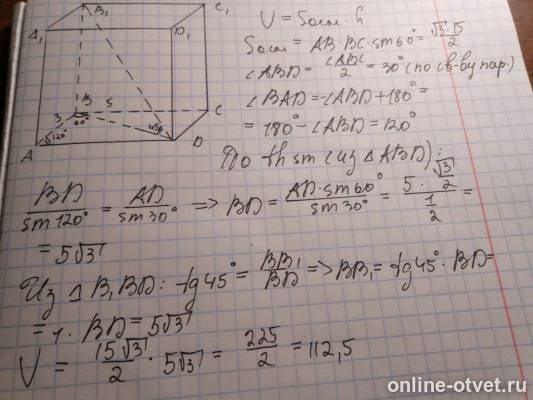 B₁ C₁
A₁ D₁
B 5 C
3 60°
120° 45°
A D
V = Sосн · h
Sосн = AB · BC · sin60° = √3·15/2
∠ABD = ∠ABC/2 = 30° (по св-ву пар.)
∠BAD = -∠ABD + 180° =
= 180° - ∠ABD = 120°
По th sin (из △ABD):
BD/sin120° = AD/sin30° => BD = AD·sin60°/sin30° = 5·√3/2/1/2 =
= 5√3
Из △B₁BD: tg45° = BB₁/BD => BB₁ = tg45° · BD =
= 1 · BD = 5√3
V = 15√3/2 · 5√3 = 225/2 = 112,5
online-otvet.ru